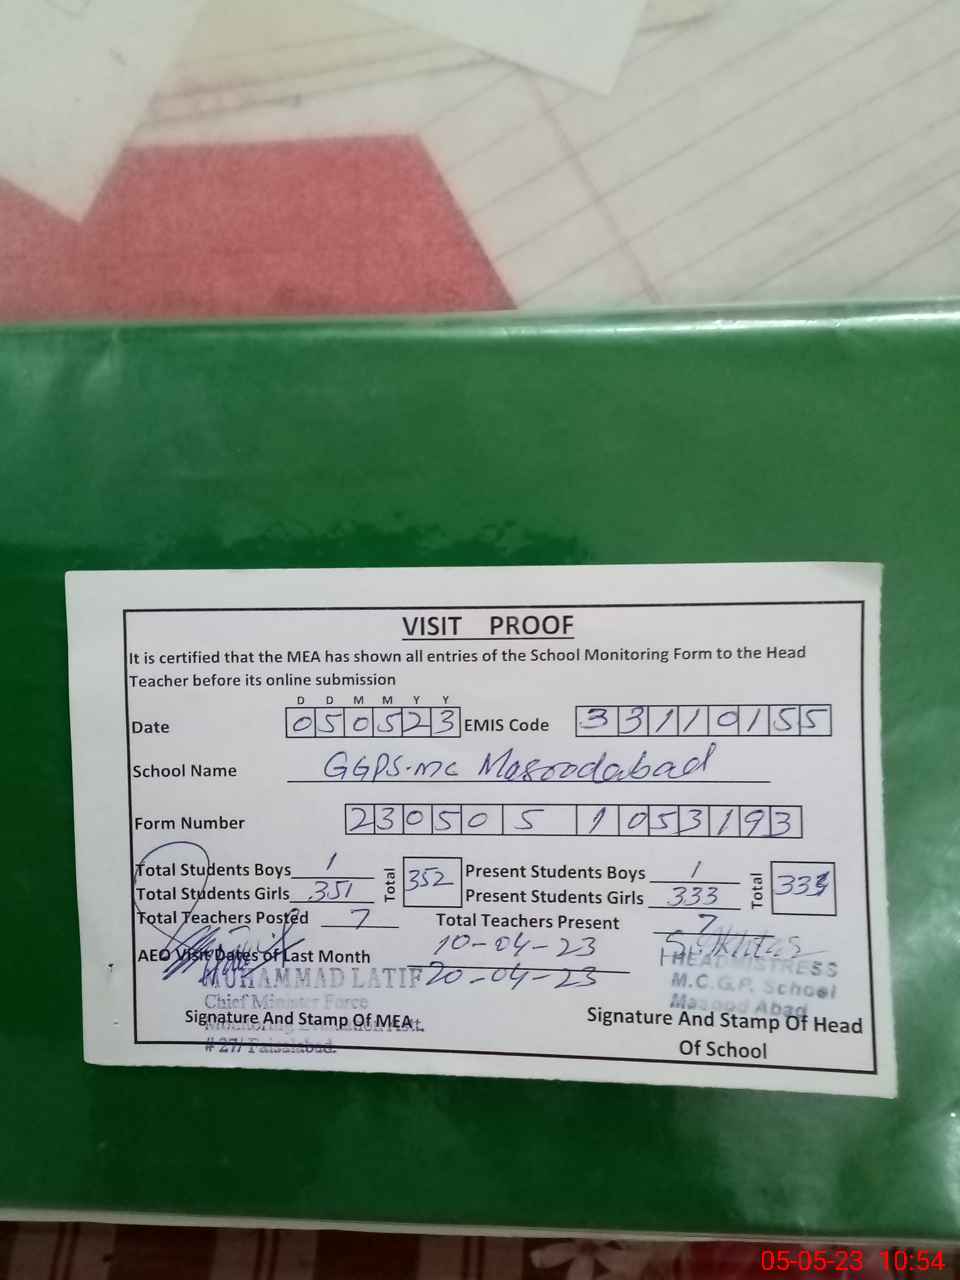 VISIT PROOF
It is certified that the MEA has shown all entries of the School Monitoring Form to the Head
Teacher before its online submission
D D M M Y Y
Date 0 5 0 5 2 3 EMIS Code 3 3 1 1 0 1 5 5
School Name GGPS.MC Masoodabad
Form Number 2 3 0 5 0 5 1 0 5 3 1 9 3
Total Students Boys 1 Total 352 Present Students Boys 1 Total
Total Students Girls 351 Present Students Girls 333
Total Teachers Posted 7 Total Teachers Present 7
AEO Visit Dates of Last Month 10-04-23
20-04-23
MUHAMMAD LATIF
Chief Minister Force
Monitoring Evaluation Asst.
# 27/ Faisalabad.
Signature And Stamp Of MEA
HEADMISTRESS
M.C.G.P. School
Masood Abad
Signature And Stamp Of Head
Of School
05-05-23 10:54